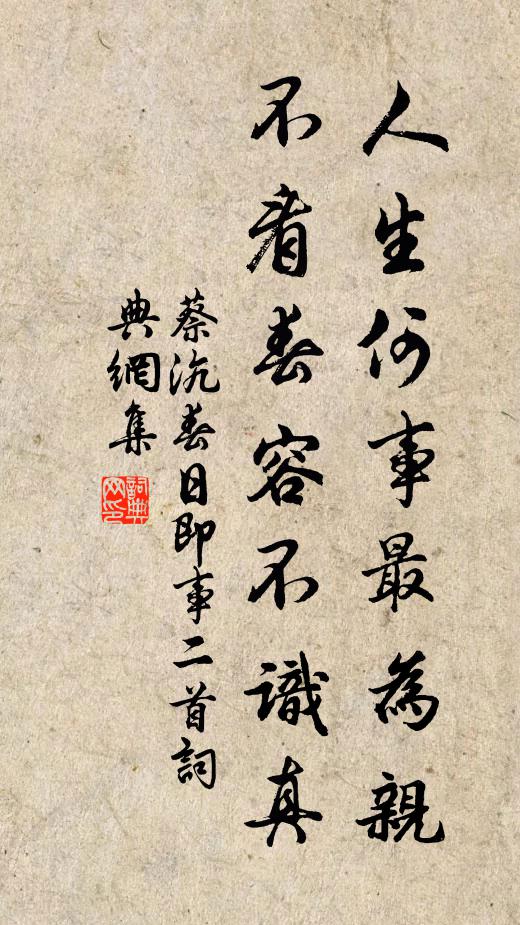 人生何事最為親
不看春容不識真
蔡沉春日即事二首詞
典網集
詞典
网印